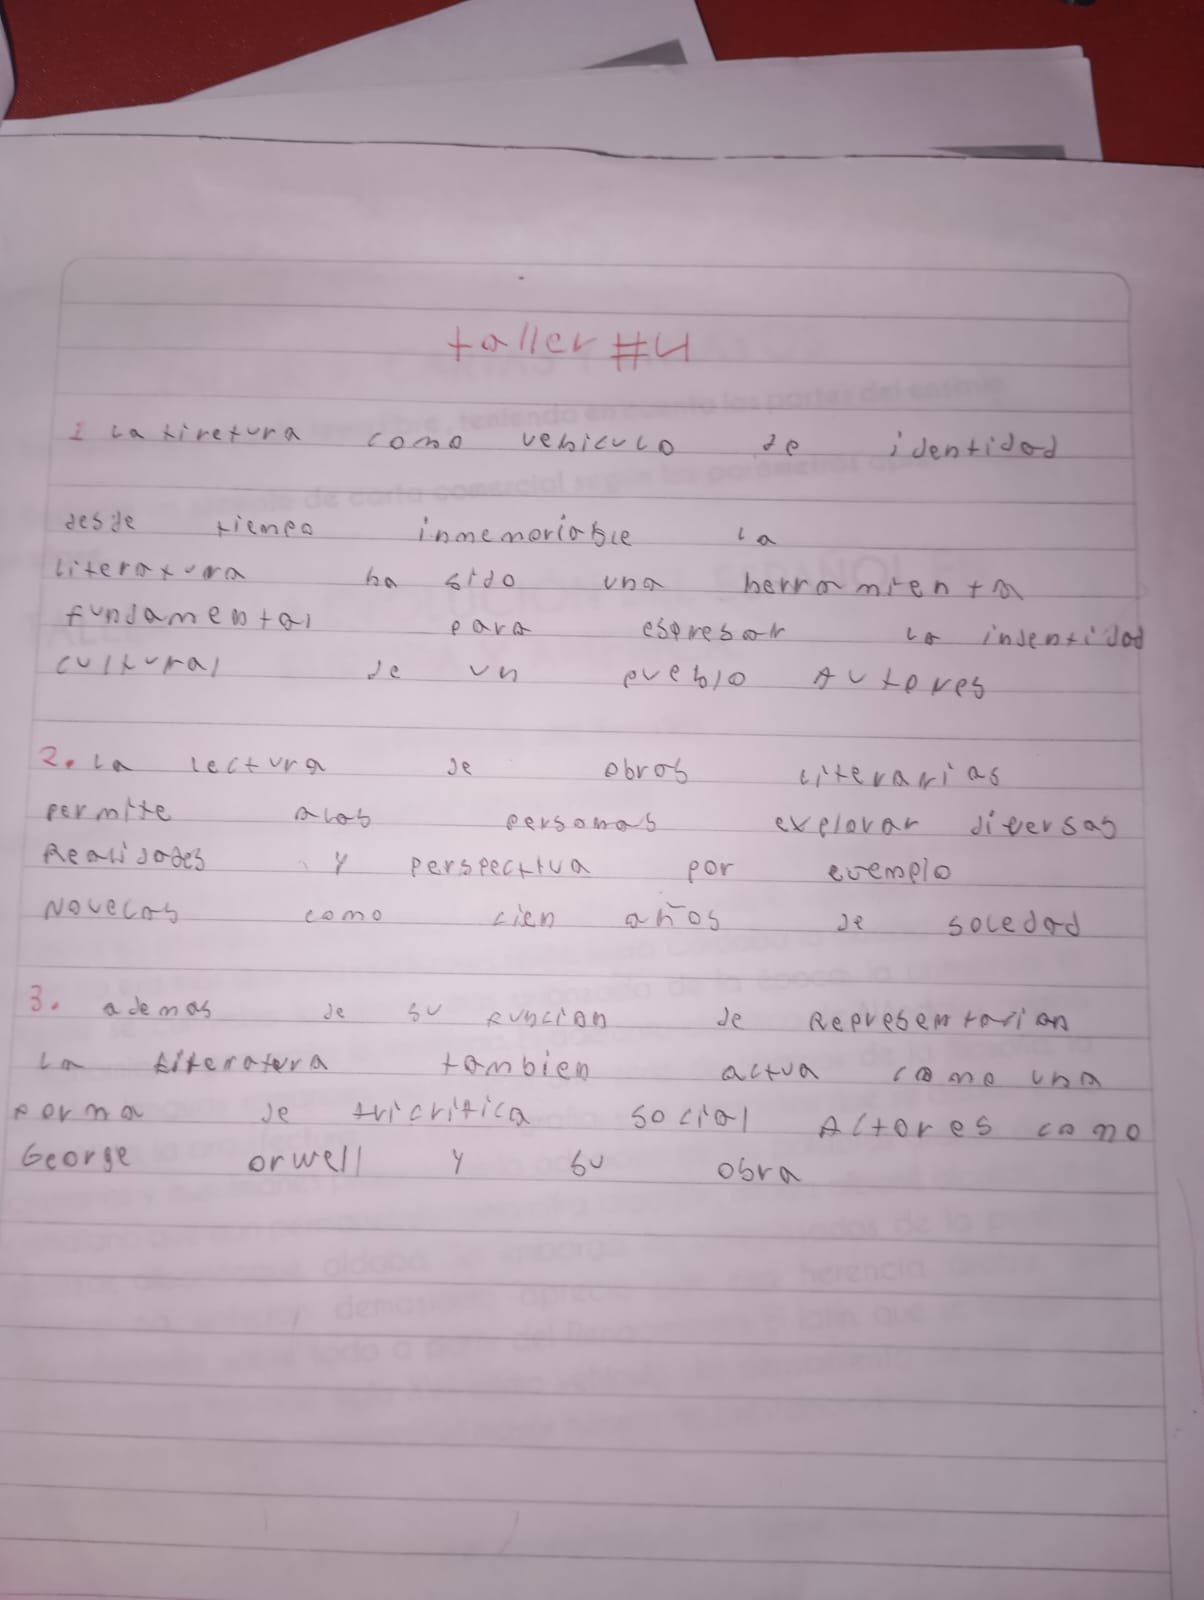 taller #4
1 La tiretura como vehiculo de identidad
desde tiempo inmemoriable la
literatura ha sido una herramienta
fundamental para espresar la indentidad
cultural de un pueblo Autores
2. La lectura de obras literarias
permite alas personas explorar diversas
Realidades y perspectiva por evemplo
Novelas como cien años de soledad
3. ademas de su funcion de Representarian
La literatura tambien actua como una
forma de tricritica social Actores como
George orwell y su obra